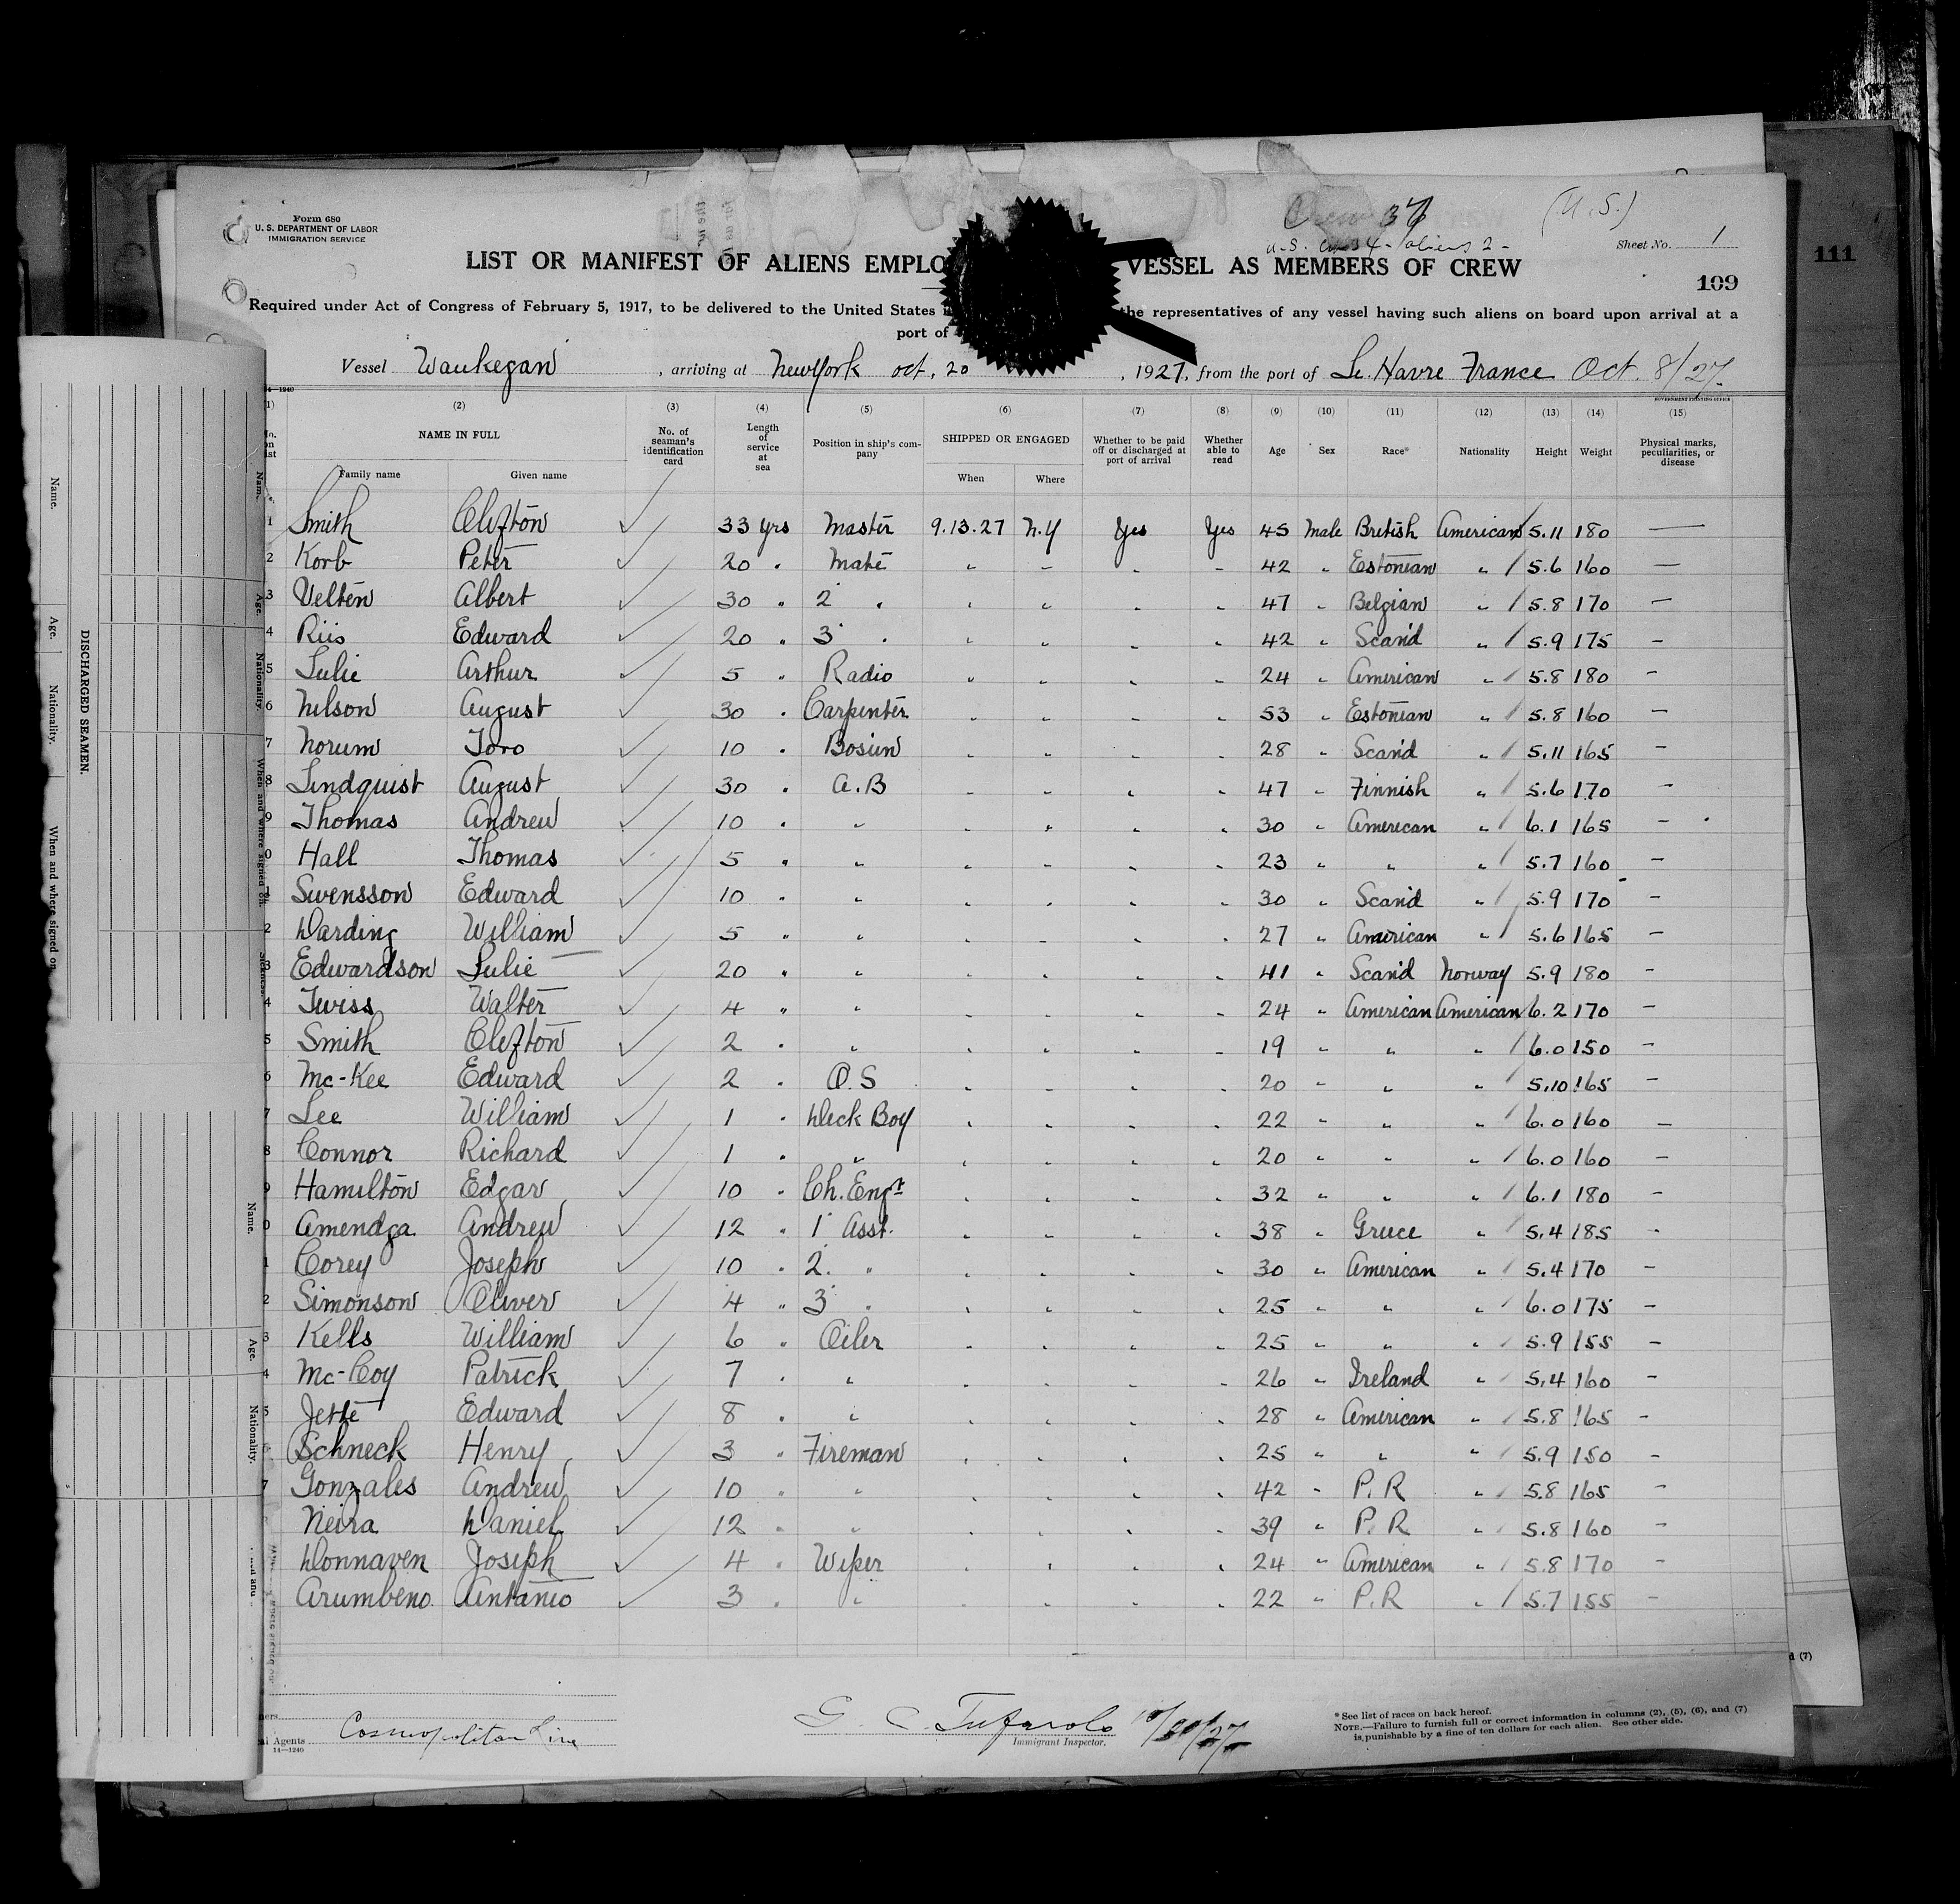 Form 680
U. S. DEPARTMENT OF LABOR
IMMIGRATION SERVICE
Crew 37
(U.S.)
U.S. 34 - aliens 2 -
Sheet No. 1
LIST OR MANIFEST OF ALIENS EMPLO VESSEL AS MEMBERS OF CREW
111
109
Required under Act of Congress of February 5, 1917, to be delivered to the United States the representatives of any vessel having such aliens on board upon arrival at a
port of
Vessel Waukegan , arriving at New York oct, 20 , 1927, from the port of Le. Havre France Oct. 8/27.
14—1240
(1) (2) (3) (4) (5) (6) (7) (8) (9) (10) (11) (12) (13) (14) (15)
NAME IN FULL No. of seaman's identification card Length of service at sea Position in ship's company SHIPPED OR ENGAGED Whether to be paid off or discharged at port of arrival Whether able to read Age Sex Race* Nationality Height Weight Physical marks, peculiarities, or disease
Family name Given name When Where
1 Smith Clifton ✓ 33 yrs Master 9.13.27 N.Y Yes Yes 45 Male British American 5.11 180 —
2 Korb Peter ✓ 20 " Mate " " " " 42 " Estonian " 5.6 160 —
3 Velten Albert ✓ 30 " 2 " " " " " 47 " Belgian " 5.8 170 —
4 Riis Edward ✓ 20 " 3 " " " " " 42 " Scand " 5.9 175 —
5 Lulie Arthur ✓ 5 " Radio " " " " 24 " American " 5.8 180 —
6 Nelson August ✓ 30 " Carpenter " " " " 53 " Estonian " 5.8 160 —
7 Norum Toro ✓ 10 " Bosun " " " " 28 " Scand " 5.11 165 —
8 Lindquist August ✓ 30 " A.B " " " " 47 " Finnish " 5.6 170 —
9 Thomas Andrew ✓ 10 " " " " " " 30 " American " 6.1 165 —
0 Hall Thomas ✓ 5 " " " " " " 23 " " " 5.7 160 —
1 Swensson Edward ✓ 10 " " " " " " 30 " Scand " 5.9 170 —
2 Darding William ✓ 5 " " " " " " 27 " American " 5.6 165 —
3 Edwardson Lulie ✓ 20 " " " " " " 41 " Scand Norway 5.9 180 —
4 Twiss Walter ✓ 4 " " " " " " 24 " American American 6.2 170 —
5 Smith Clifton ✓ 2 " " " " " " 19 " " " 6.0 150 —
6 Mc-Kee Edward ✓ 2 " O.S " " " " 20 " " " 5.10 165 —
7 Lee William ✓ 1 " Deck Boy " " " " 22 " " " 6.0 160 —
8 Connor Richard ✓ 1 " " " " " " 20 " " " 6.0 160 —
9 Hamilton Edgar ✓ 10 " Ch. Engr " " " " 32 " " " 6.1 180 —
0 Amendga Andrew ✓ 12 " 1 Asst. " " " " 38 " Greece " 5.4 185 —
1 Corey Joseph ✓ 10 " 2. " " " " " 30 " American " 5.4 170 —
2 Simonson Oliver ✓ 4 " 3 " " " " " 25 " " " 6.0 175 —
3 Kells William ✓ 6 " Oiler " " " " 25 " " " 5.9 155 —
4 Mc-Coy Patrick ✓ 7 " " " " " " 26 " Ireland " 5.4 160 —
5 Jette Edward ✓ 8 " " " " " " 28 " American " 5.8 165 —
6 Schneck Henry ✓ 3 " Fireman " " " " 25 " " " 5.9 150 —
7 Gonzales Andrew ✓ 10 " " " " " " 42 " P.R " 5.8 165 —
Neira Daniel ✓ 12 " " " " " " 39 " P.R " 5.8 160 —
Donnaven Joseph ✓ 4 " Wiper " " " " 24 " American " 5.8 170 —
Arumbeno Antanio ✓ 3 " " " " " " 22 " P.R " 5.7 155 —
Agents Cosmopolitan Line
14—1240
G. C. Tufarolo 10/20/27
Immigrant Inspector.
* See list of races on back hereof.
NOTE.—Failure to furnish full or correct information in columns (2), (5), (6), and (7)
is punishable by a fine of ten dollars for each alien. See other side.
DISCHARGED SEAMEN.
Name. Age. Nationality. When and where signed on
Name. Age. Nationality. When and where signed on. Sickness
Name. Age. Nationality.